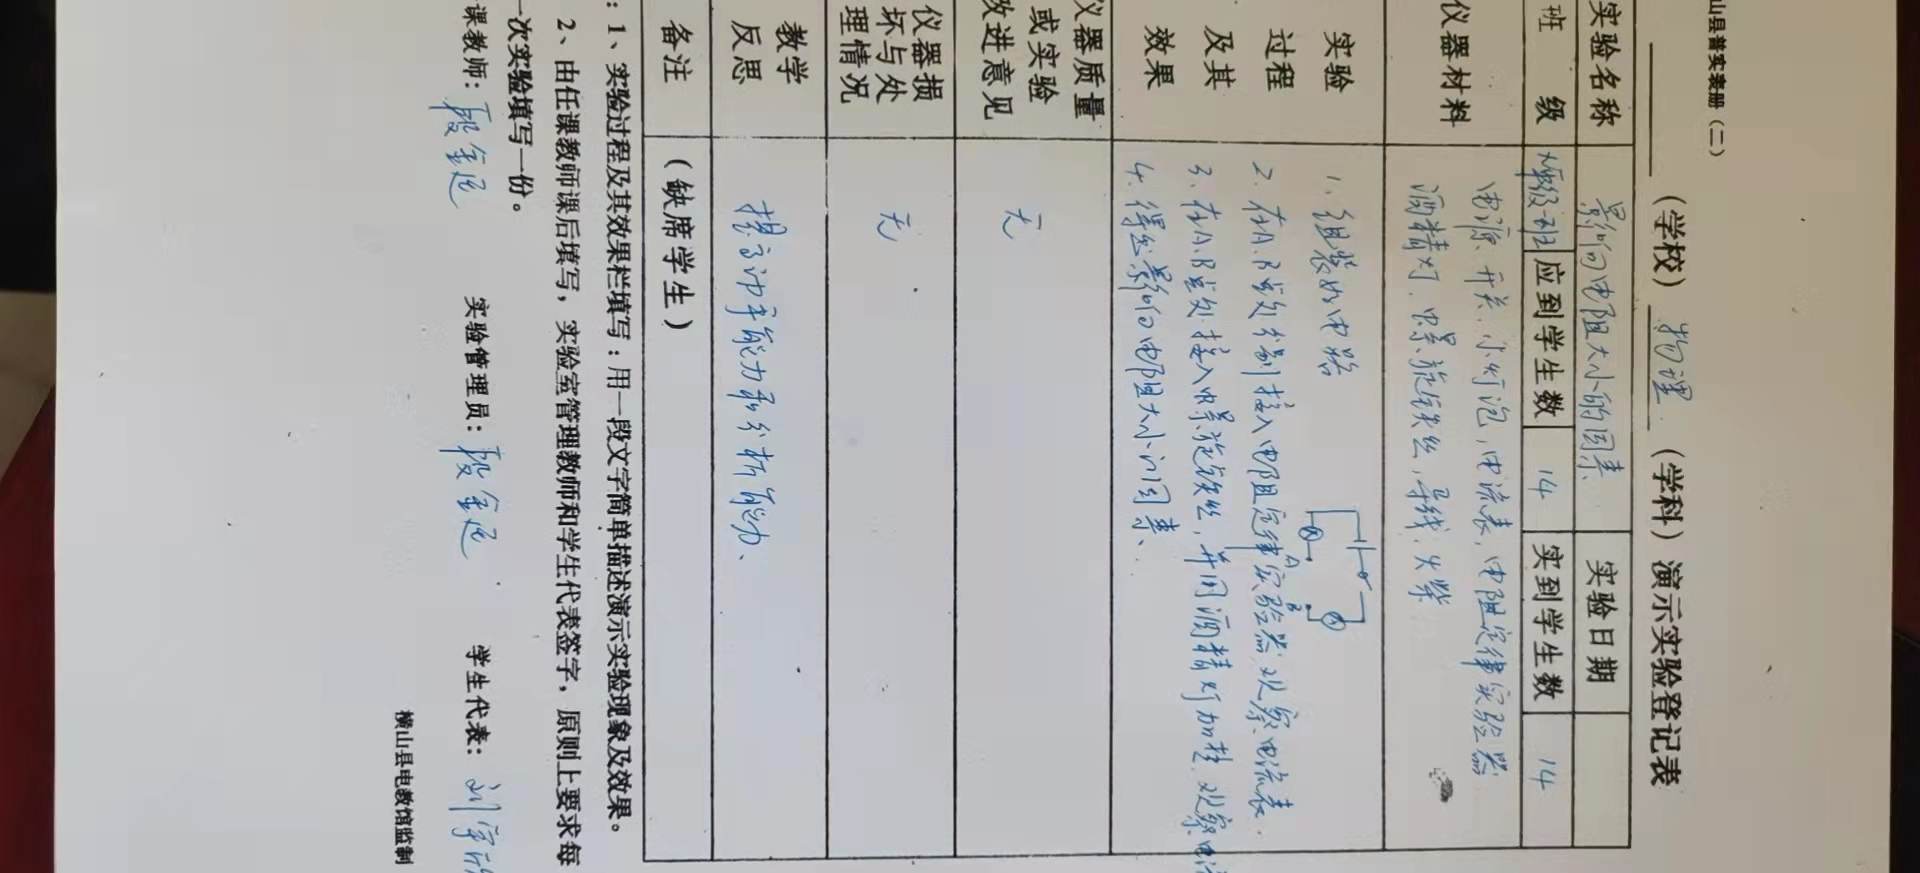 山县普实表册（二）
（学校）物理（学科）演示实验登记表
实验名称 影响电阻大小的因素 实验日期
班级 应到学生数 14 实到学生数 14
仪器材料 电源、开关、小灯泡、电流表、电阻定律实验器
酒精灯、螺旋铁丝、导线、火柴
实验过程及其效果
1、组装好电路
A B
2、在A、B处分别接入电阻定律实验器,观察电流表.
3、在A、B处接入螺旋铁丝,并用酒精灯加热,观察电流
4、得出影响电阻大小因素、
仪器质量或实验改进意见 无
仪器损坏与处理情况 无
教学反思 提高动手能力和分析能力、
备注 （缺席学生）
：1、实验过程及其效果栏填写：用一段文字简单描述演示实验现象及效果。
2、由任课教师课后填写，实验室管理教师和学生代表签字，原则上要求每
一次实验填写一份。
课教师： 实验管理员： 学生代表：
横山县电教馆监制